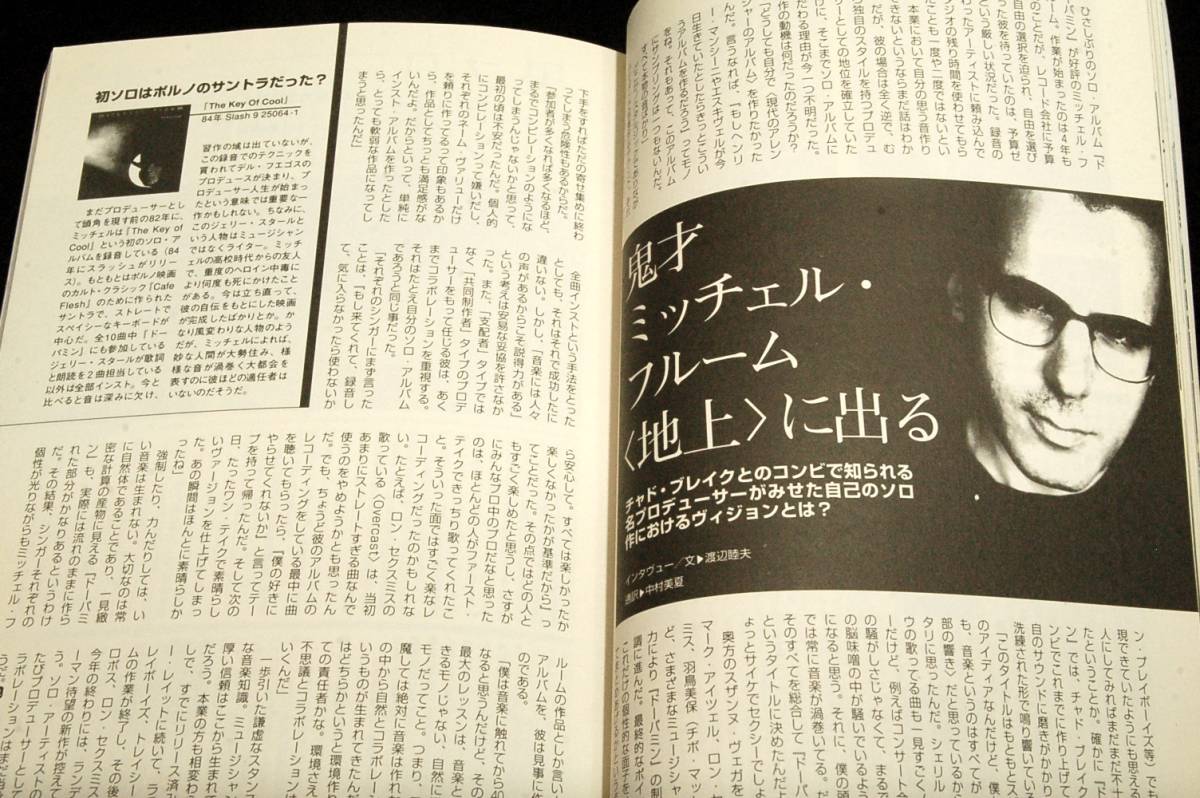 ひさしぶりのソロ・アルバム『ド
パミン』が好評のミッチェル・フ
ーム。作業が始まったのは4年も
のことだが、レコード会社に予算
自由の選択を迫られ、自由を選び
った彼を待っていたのは、予算ゼ
という厳しい状況だった。録音の
わったアーティストに頼み込んで
タジオの残り時間を使わせてもら
たことも一度や二度ではないとい
本業において自分の思う音作り
できないというならまだ話はわか
だが、彼の場合は全く逆で、む
独自のスタイルを持つプロデュ
ーサーとしての地位を確立していた
けに、そこまでソロ・アルバムに
だわる理由が今一つ不明だった。
作の動機は何だったのだろうか?
「どうしても自分で〈現代のアレン
ジャーのアルバム〉を作りたかった
んだ。言うなれば、『もしヘンリ
ー・マンシーニやエスキヴェルが今
日生きていたとしたらきっとこうい
うアルバムを作るだろう』ってモノ
をね。それもあって、このアルバム
にサンプリングは一つもないんだ。
鬼才
ミッチェル・
フルーム
〈地上〉に出る
チャド・ブレイクとのコンビで知られる
名プロデューサーがみせた自己のソロ
作におけるヴィジョンとは?
インタヴュー/文▶渡辺睦夫
通訳▶中村美夏
ン・プレイボーイズ等」でも
現できていたようにも思える
人にしてみればまだまだ不十
たということか、確かに『ド
ン』では、チャド・ブレイク
ンビでこれまでに作り上げて
自のサウンドに磨きがかかり
洗練された形で鳴り響いている
「このタイトルはもともとス
のアイディアなんだけど、僕
も、音楽というのはすべてが
部の響き〉だと思っているから
タリに思ったんだ。シェリル
ウの歌ってる曲も一見すごくハ
ーだけど、例えばコンサート会
の騒がしさじゃなくて、まるで
の脳味噌の中が騒いでいるよう
になると思う。それに、僕の頭
では常に音楽が渦巻いてる。だ
そのすべてを総合して『ドーパ
というタイトルに決めたんだ。
ょっとサイケでセクシーでしょ
奥方のスザンヌ・ヴェガを
マーク・アイツェル、ロン・セ
ミス、羽鳥美保(チボ・マッ
ど、さまざまなミュージシャ
力により『ドーパミン』の制
調に進んだ。最終的なボイ
これだけの個性的な面子を
下手をすればただの寄せ集めに終わ
ってしまう危険性もあるからだ。
「参加者が多くなれば多くなるほど、
まるでコンピレーションのようにな
ってしまうんじゃないかと思って、
最初の頃は不安だったんだ。個人的
にコンピレーションって嫌いだし、
それぞれのネーム・ヴァリューだけ
を頼りに作ってるって印象もあるか
ら、作品としてちっとも満足感がな
いんだよ。だからといって、単純に
インスト・アルバムを作ったとした
ら、とっても軟弱な作品になってし
まうと思ったんだ」
初ソロはポルノのサントラだった?
『The Key Of Cool』
84年 Slash 9 25064-1
まだプロデューサーとし
て頭角を現す前の82年に、
ミッチェルは『The Key of
Cool』という初のソロ・ア
ルバムを録音している(84
年にスラッシュがリリー
ス)。もともとはポルノ映画
のカルト・クラシック『Cafe
Flesh』のために作られた
サントラで、ストレートで
スペイシーなキーボードが
中心だ。全10曲中『ドー
パミン』にも参加している
ジェリー・スタールが歌詞
と朗読を2曲担当している
以外は全部インスト。今と
比べると音は深みに欠け、
習作の域は出ていないが、
この録音でのテクニックを
買われてデル・フエゴスの
プロデュースが決まり、プ
ロデューサー人生が始まっ
たという意味では重要な一
作かもしれない。ちなみに、
このジェリー・スタールと
いう人物はミュージシャン
ではなくライター。ミッチ
ェルの高校時代からの友人
で、重度のヘロイン中毒に
より何度も死にかけたこと
がある。今は立ち直って、
彼の自伝をもとにした映画
が完成したばかりとか。か
なり風変わりな人物のよう
だが、ミッチェルによれば、
妙な人間が大勢住み、様々
様な音が渦巻く大都会を
表すのに彼ほどの適任者は
いないのだそうだ。
全曲インストという手法をとった
としても、それはそれで成功したに
違いない。しかし、「音楽には人々
の声があるからこそ説得力がある」
という考えは安易な妥協を許さなか
った。また、「支配者」タイプでは
なく「共同制作者」タイプのプロデ
ューサーをもって任じる彼は、あく
までコラボレーションを重視する。
それはたとえ自分のソロ・アルバム
であろうと同じ事だった。
「それぞれのシンガーにまず言った
ことは、『もし来てくれて、録音し
て、気に入らなかったら使わないか
ら安心して。すべては楽しかったか
楽しくなかったかが基準だから』っ
てことだった。その点ではどの人と
もすごく楽しめたと思うし、さすが
にみんなプロ中のプロだなと思った
のは、ほとんどの人がファースト・
テイクできっちり歌ってくれたこ
と。そういった面ではすごく楽なレ
コーディングだったのかもしれな
い。たとえば、ロン・セクスミスの
歌っている〈Overcast〉は、当初
あまりにストレートすぎる曲なんで
使うのをやめようかとも思ったん
だ。でも、ちょうど彼のアルバムの
レコーディングをしている最中に曲
を聴いてもらったら、『僕の好きに
やらせてくれないか』と言ってテー
プを持って帰ったんだ。そして次の
日、たったワン・テイクで素晴らし
いヴァージョンを仕上げてしまっ
た。あの瞬間はほんとに素晴らしか
ったね」
強制したり、力んだりしては、い
い音楽は生まれない。大切なのは常
に自然体であることであり、一見緻
密な計算の産物に見える『ドーパミ
ン』も、実際には流れのままに作ら
れた部分がかなりあるというわけ
だ。その結果、シンガーそれぞれの
個性が光りながらもミッチェル・フ
ルームの作品としか言い
アルバムを、彼は見事に作
のである。
「僕は音楽に触れてから40
なると思うんだけど、その
最大のレッスンは、音楽と
きるモノじゃない、自然に
モノだってこと。つまり、
魔しては絶対に音楽は作れ
の中から自然とコラボレー
いうものが生まれてきたんだ
はどちらかというと環境作り
ての責任者かな。環境さえ
不思議とコラボレーション
いくんだ」
一歩引いた謙虚なスタン
な音楽知識。ミュージシャ
厚い信頼はここから生まれて
だろう。本業の方も相変わら
しで、すでにリリース済み
ー・レイットに続いて、ラ
レイボーイズ、トレイ
ムの作業が終了し、その後
ロボス、ロン・セクスミス
今年の終わりには、ランデ
ーマン待望の新作が控えて
う。ソロ・アーティストの
たびプロデューサーとして
ラボレーションは